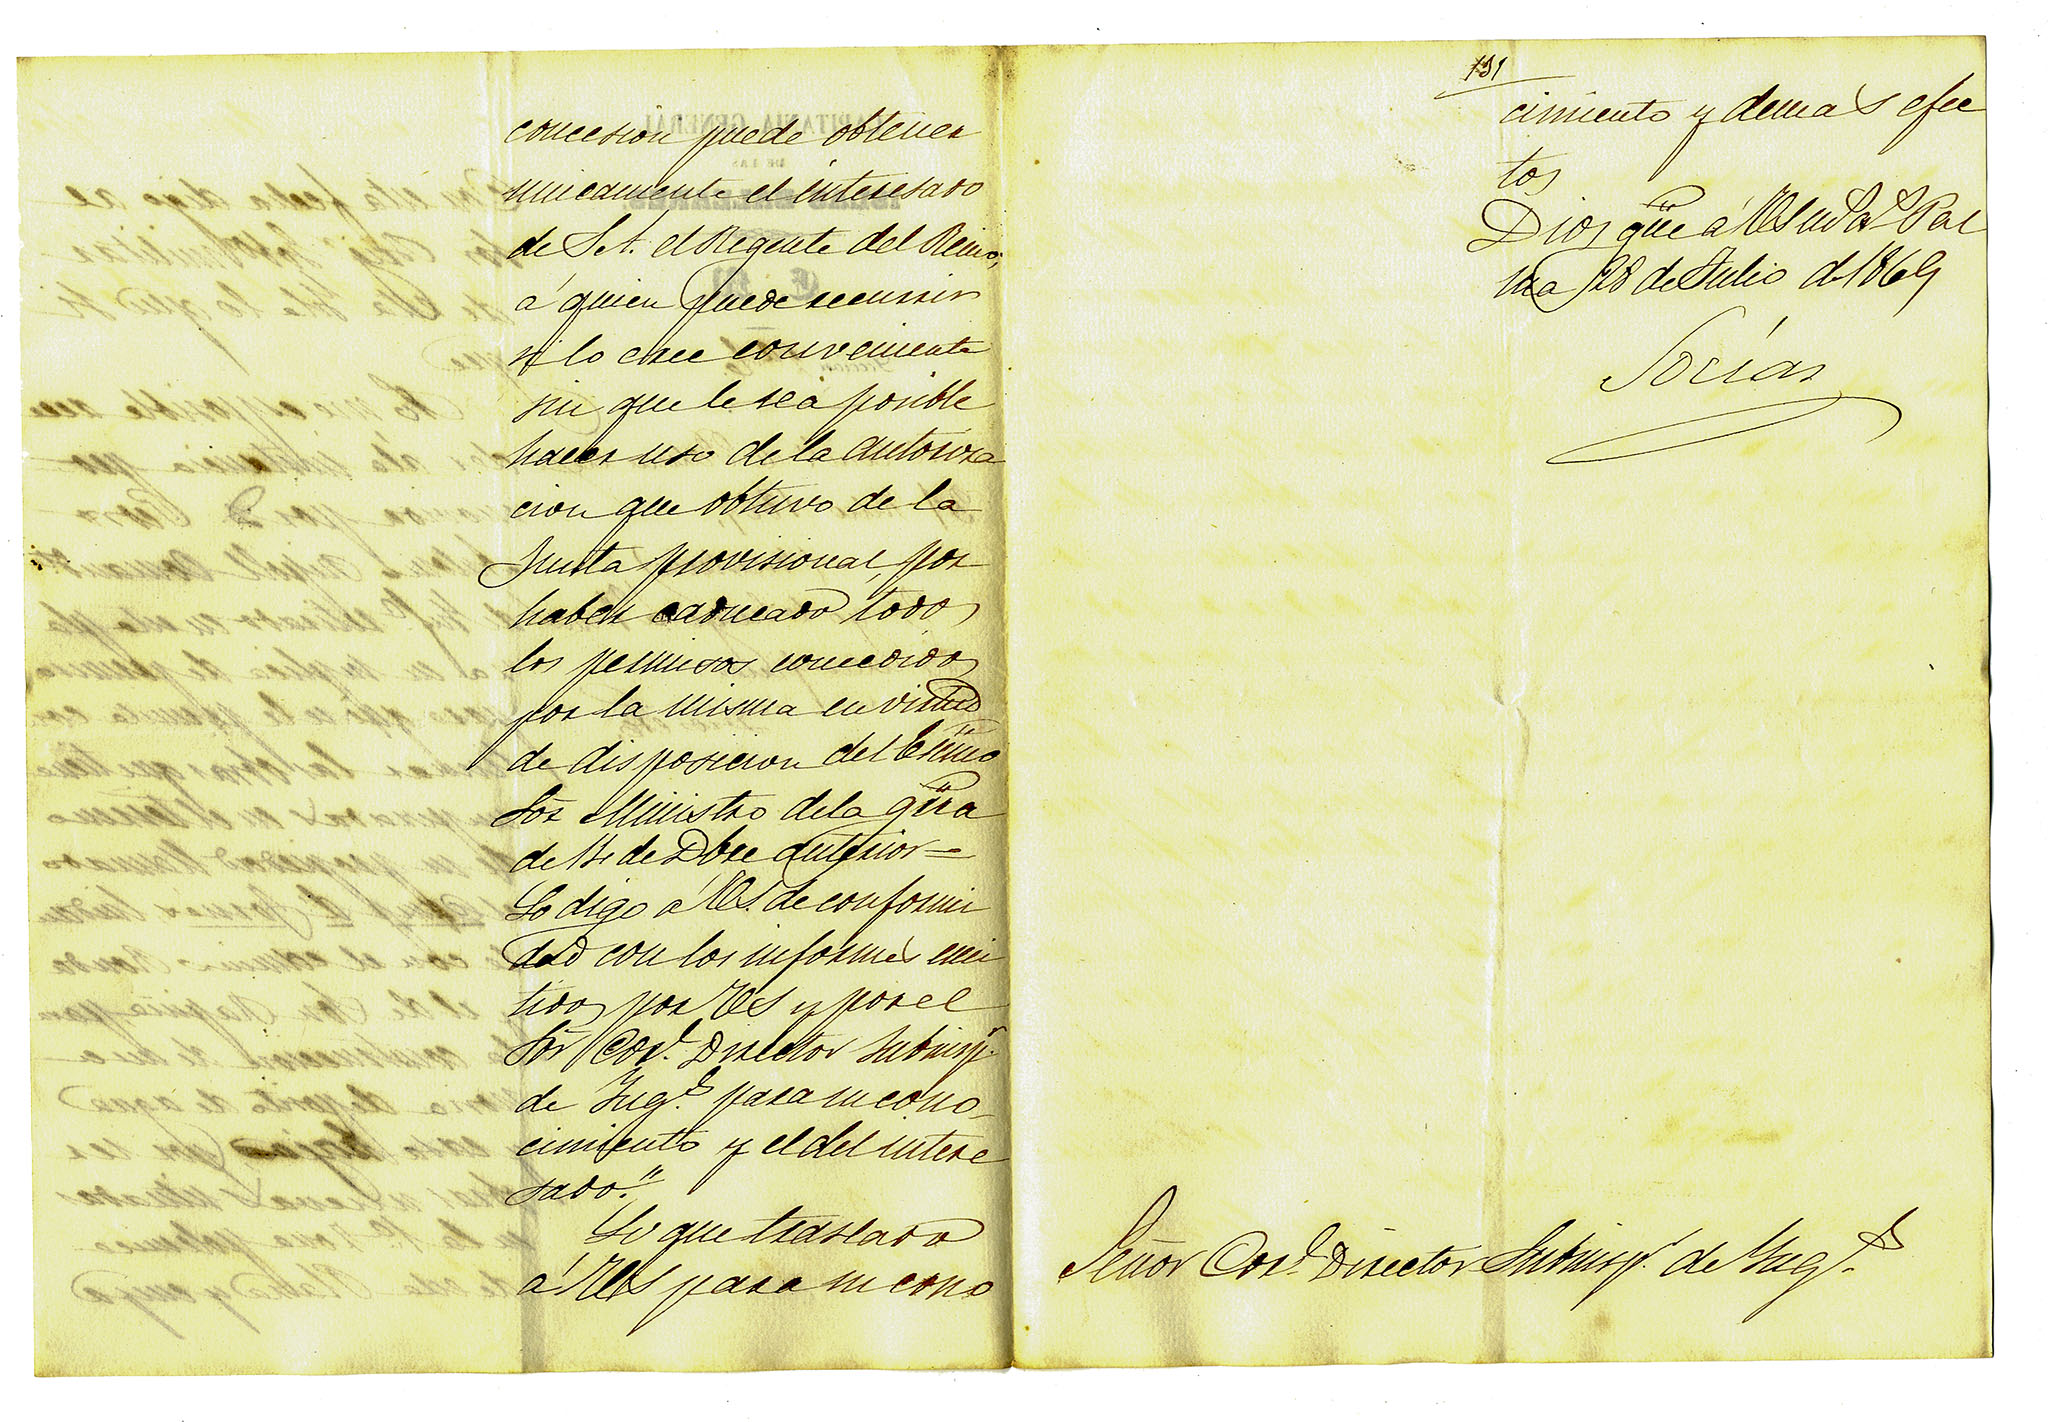 concesion puede obtener
unicamente el interesado
de S.A. el Regente del Reino,
á quien puede recurrir
si lo cree conveniente
sin que le sea posible
hacer uso de la autoriza
cion que obtuvo de la
Junta provisional, por
haber caducado todos
los permisos concedidos
por la misma en virtud
de disposicion del Exmo
Sor Ministro de la Grra
de 14 de Dbre anterior =
Lo digo a VS. de conformi
dad con los informes emi
tidos por VS y por el
Sor Corl. Director Subinspr.
de Ings. para su cono-
cimiento y el del intere
sado."
Lo que traslado
á VS para su cono
131
cimiento y demas efec
tos
Dios gue á VS ms as Pal
ma 28 de Julio de 1869
Sorias
Señor Corl. Director Subinspr. de Ings.